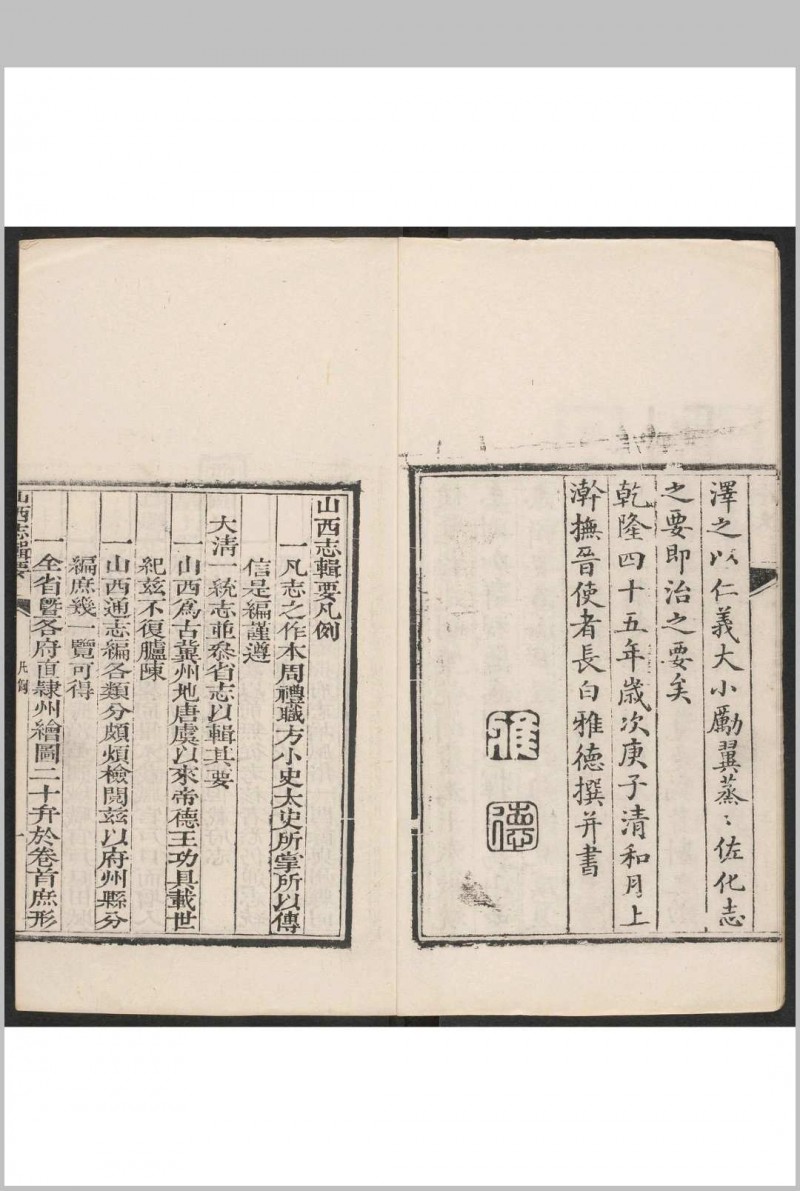 澤之以仁義大小勵翼蒸〻佐化志
之要即治之要矣
乾隆四十五年歲次庚子清和月上
澣撫晉使者長白雅德撰并書
雅
德
山西志輯要凡例
一凡志之作本周禮職方小史太史所掌所以傳
信是編謹遵
大清一統志並叅省志以輯其要
一山西爲古冀州地唐虞以來帝德王功具載世
紀兹不復臚陳
一山西通志編各類分頗煩檢閱兹以府州縣分
編庶幾一覽可得
一全省曁各府直隸州繪圖二十弁於卷首庶形
山西志輯要
凡例
一